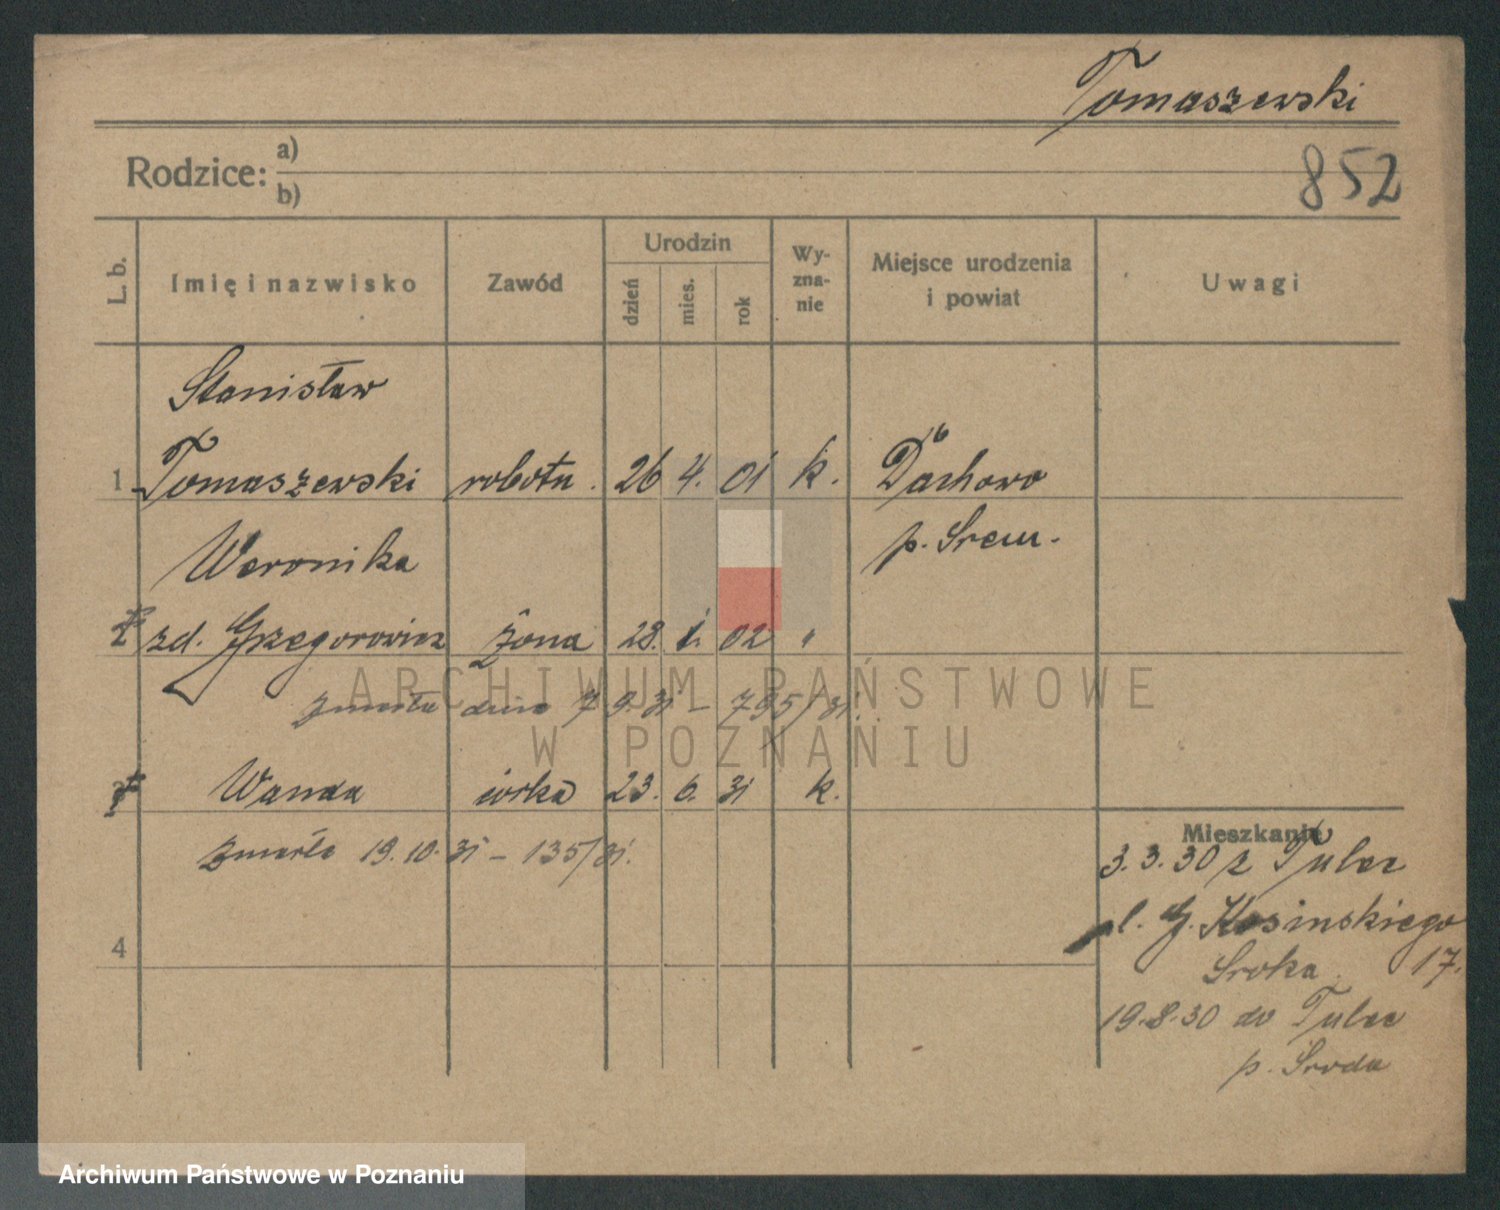 Tomaszewski
Rodzice: a)
b)
852
L. b. Imię i nazwisko Zawód Urodzin dzień mies. rok Wy-zna-nie Miejsce urodzenia i powiat Uwagi
Stanisław
1 Tomaszewski robotn. 26 4. 01 k. Dachowo
p. Śrem.
Weronika
zd. Grzegorowicz żona 28. 1. 02 "
zmarła dnia 7 9. 31 – 795/31.
Wanda córka 23. 6. 31 k.
zmarła 19.10.31 – 135/31.
4
Mieszkanie
3.3.30 z Tulec
G. Kosinskiego
Sroka 17.
19.8.30 do Tulec
p. Środa
ARCHIWUM PAŃSTWOWE
W POZNANIU
Archiwum Państwowe w Poznaniu